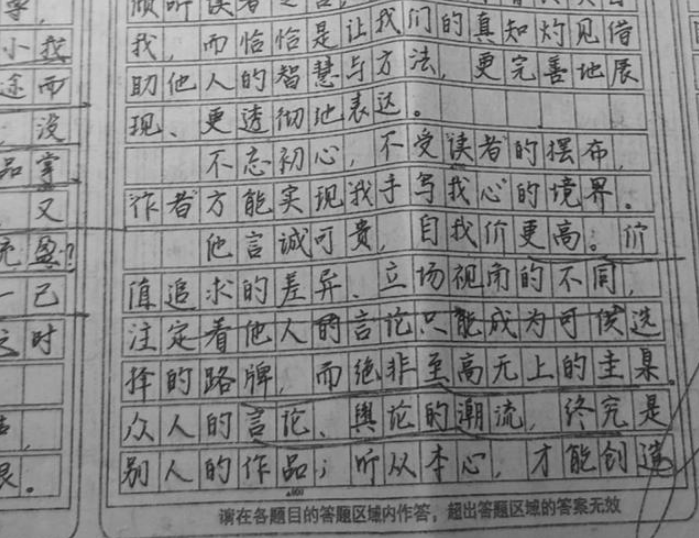 倾听读者之言
我，而恰恰是让我们的真知灼见借
助他人的智慧与方法，更完善地展
现、更透彻地表达。
不忘初心，不受读者的摆布，
作者方能实现我手写我心的境界。
他言诚可贵，自我价更高。价
值追求的差异、立场视角的不同，
注定着他人的言论只能成为可供选
择的路牌，而绝非至高无上的圭臬。
众人的言论、舆论的潮流，终究是
别人的作品；听从本心，才能创造
小我
途而
，没
品掌
又
充盈？
一己
之时
，
艮。
请在各题目的答题区域内作答，超出答题区域的答案无效